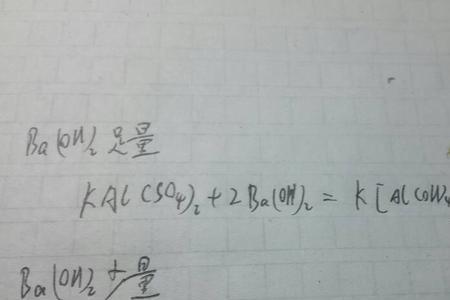 Ba(OH)₂ 足量
KAl(SO₄)₂ + 2Ba(OH)₂ = K[Al(OH)₄
Ba(OH)₂ 少量